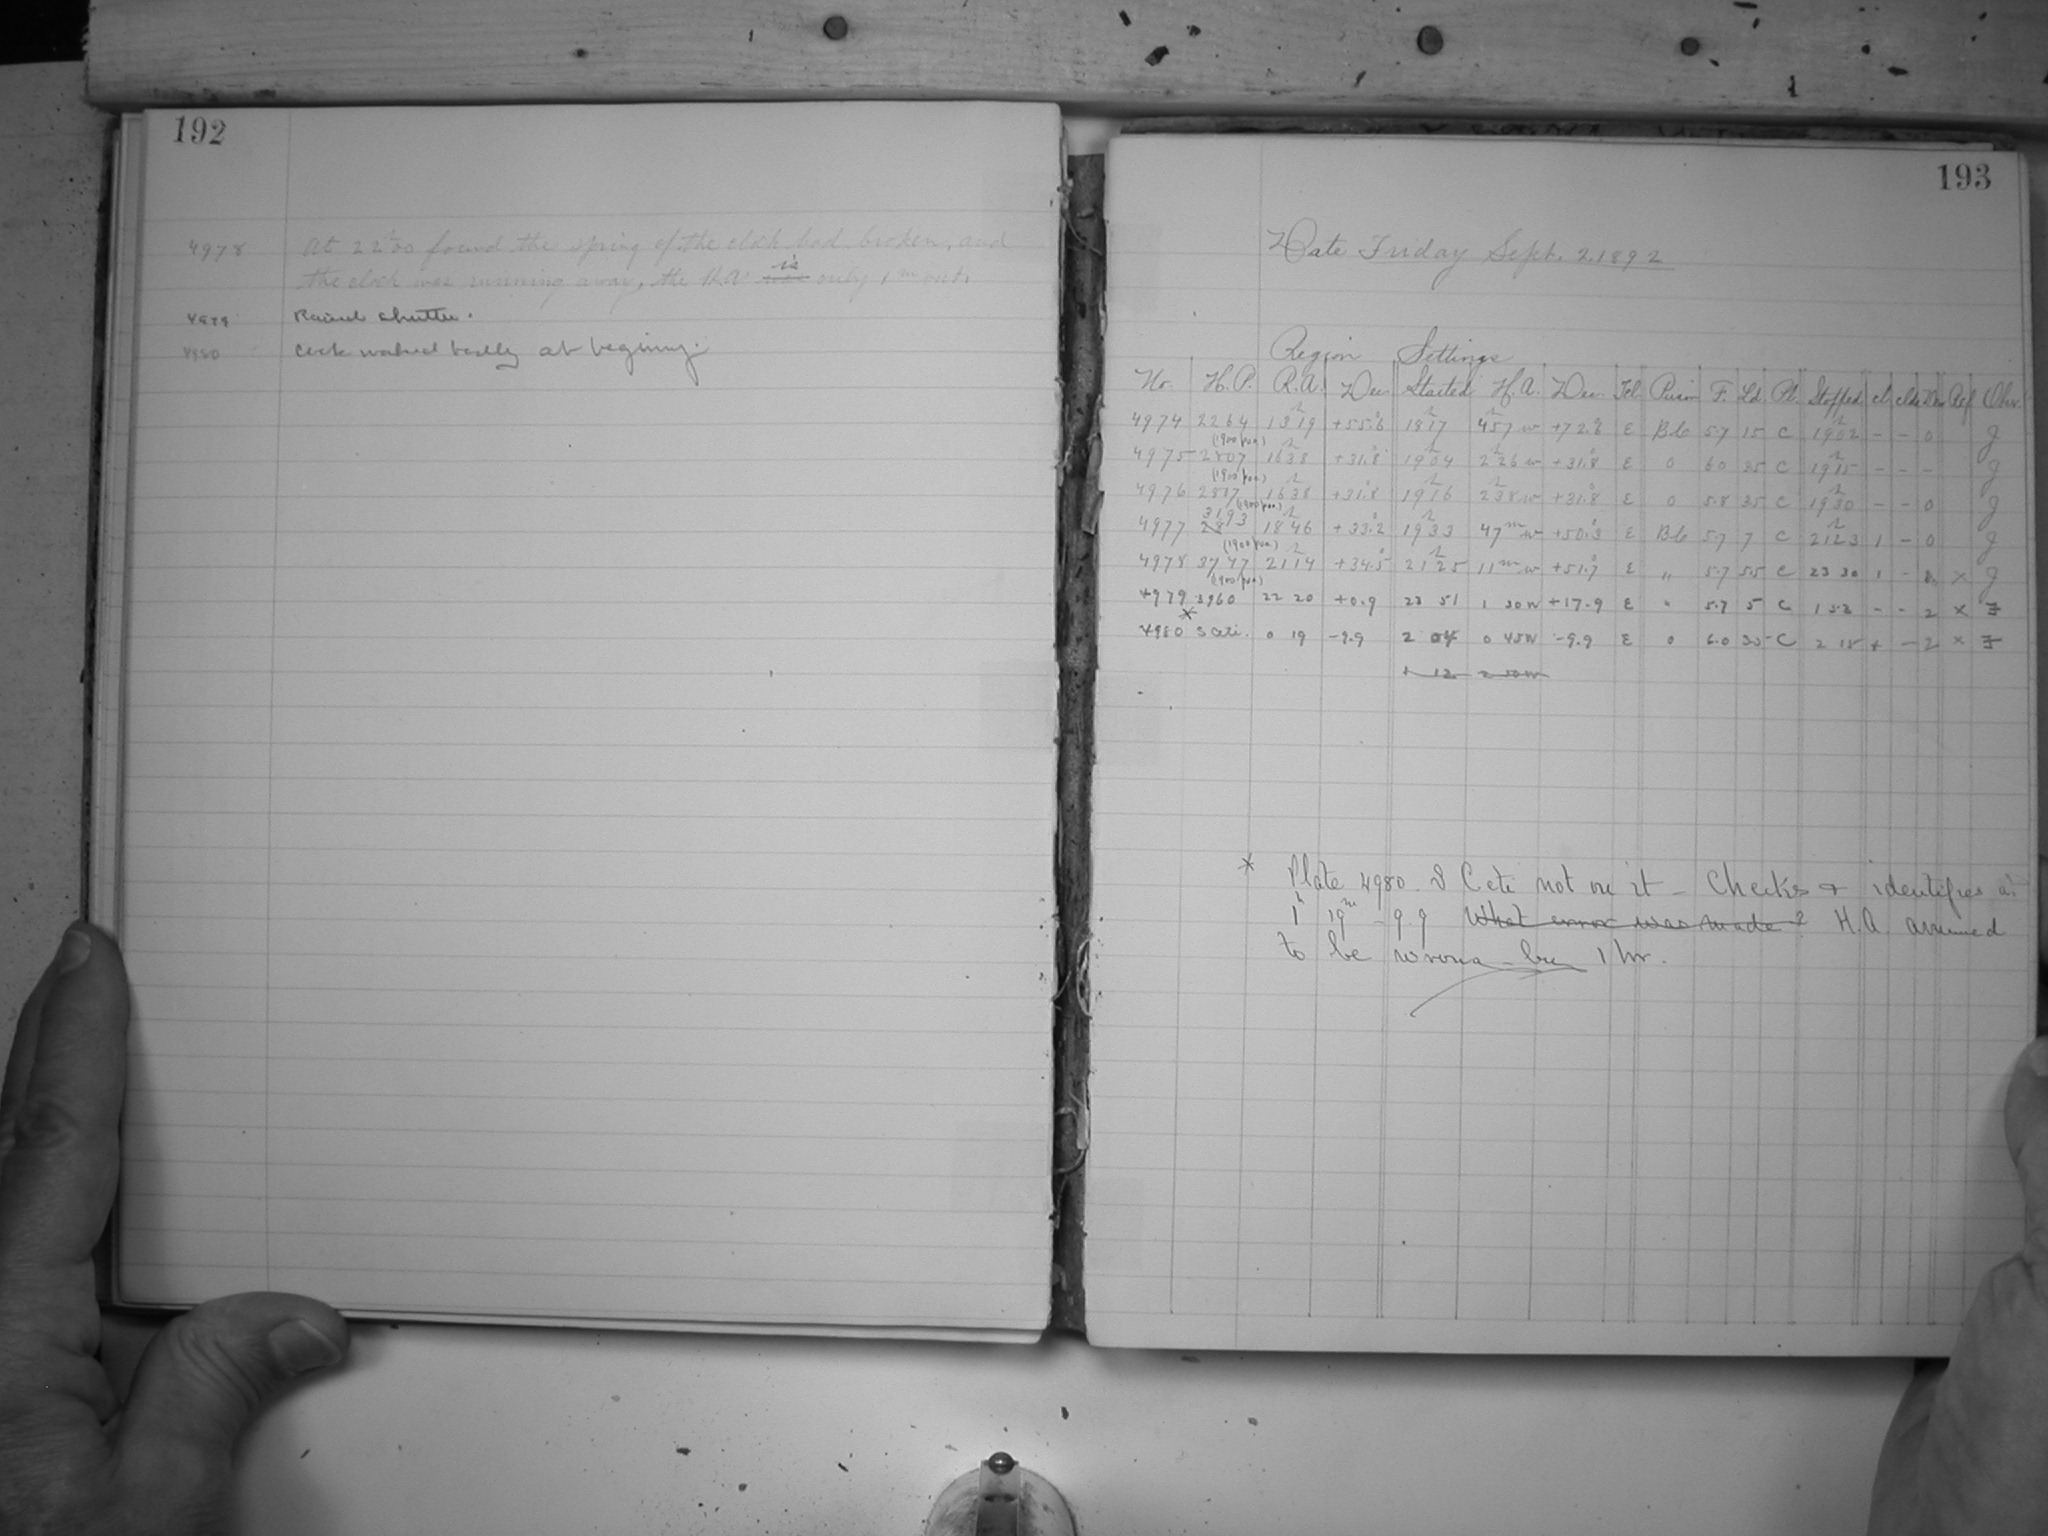 192
4978 At 22 30 found the spring of the clock had broken, and
the clock was running away, the H.A. is only 1m out.
4979 Raised shutter.
4980 Clock worked badly at beginning.
193
Date Friday Sept. 2. 1892
Region Settings
No. H.P. R.A. Dec. Started H.A. Dec. Tel. Prism F. Ld. Pl. Stopped cl. clds Dw Ref Obs.
4974 2264 13h19 +55.6 18h17 4h57 w +72.8 E Bb 5.7 15 C 19h02 - - 0 J
(1900 pos.)
4975 2807 16h38 +31.8 19h04 2h26 w +31.8 E 0 60 35 C 19h15 - - - J
(1900 pos.)
4976 2817 16h38 +31.8 19h16 2h38 w +31.8 E 0 5.8 35 C 19h30 - - 0 J
(1900 pos.)
4977 3193 18h46 +33.2 19h33 47m w +50.3 E Bb 5.7 7 C 21h23 1 - 0 J
(1900 pos.)
4978 3747 21h14 +34.5 21h25 11m w +51.7 E " 5.7 5.5 C 23 30 1 - x J
(1900 pos.)
4979 3960 22 20 +0.9 23 51 1 30 w +17.9 E " 5.7 5 C 1 52 - - 2 x F
*
4980 S Ceti. 0 19 -9.9 2 04 0 45 w -9.9 E 0 6.0 35 C 2 15 + - 2 x F
* Plate 4980. S Ceti not on it - Checks & identifies as
1h 19m - 9.9 What error was made? H.A assumed
to be wrong by 1 hr.